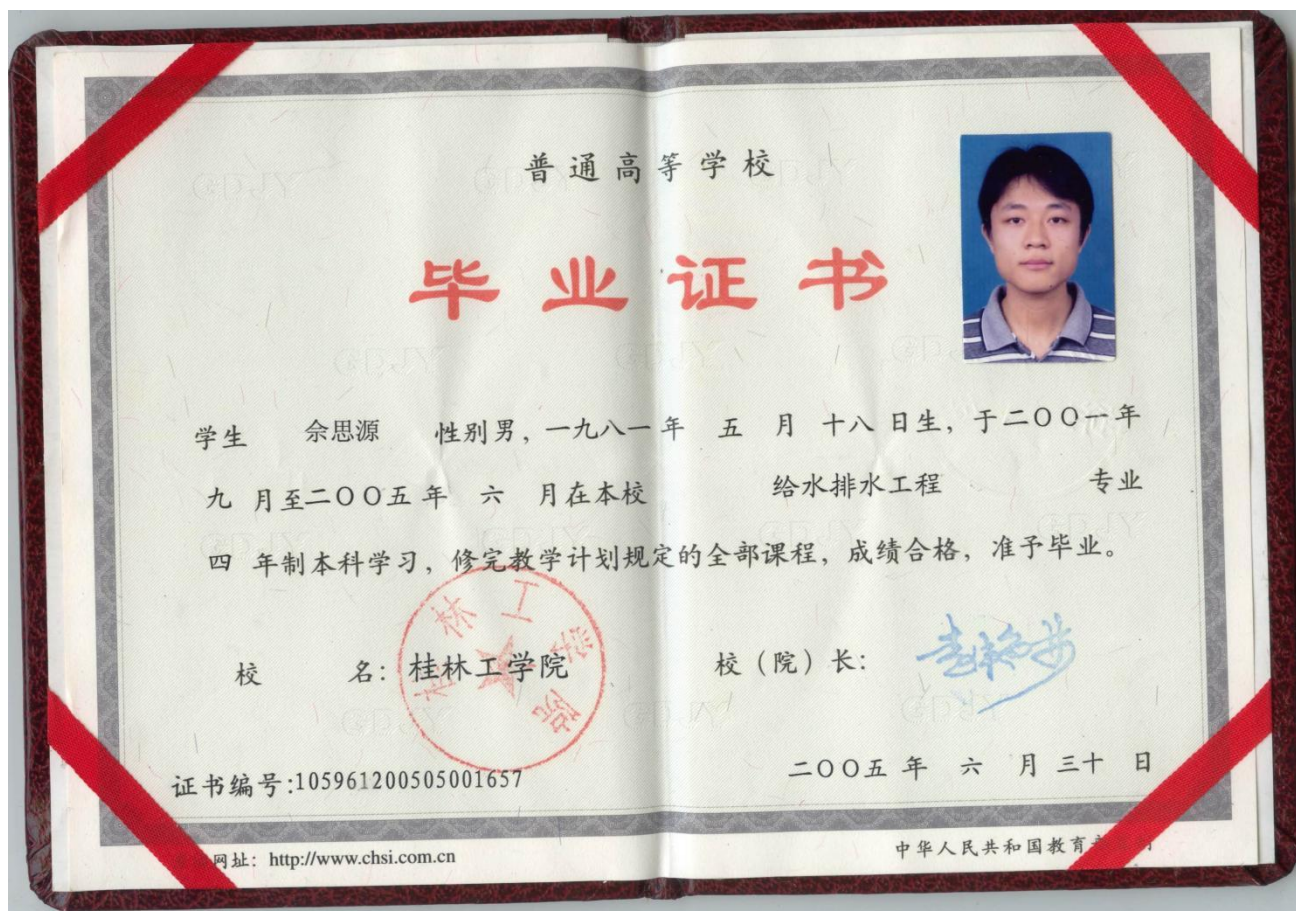 普通高等学校
毕业证书
学生 佘思源 性别男，一九八一年 五 月 十八 日生，于二〇〇一年
九 月至二〇〇五年 六 月在本校 给水排水工程 专业
四 年制本科学习，修完教学计划规定的全部课程，成绩合格，准予毕业。
校 名：桂林工学院 校（院）长：
桂林工学院
证书编号:105961200505001657 二〇〇五年 六 月 三十 日
网址：http://www.chsi.com.cn 中华人民共和国教育